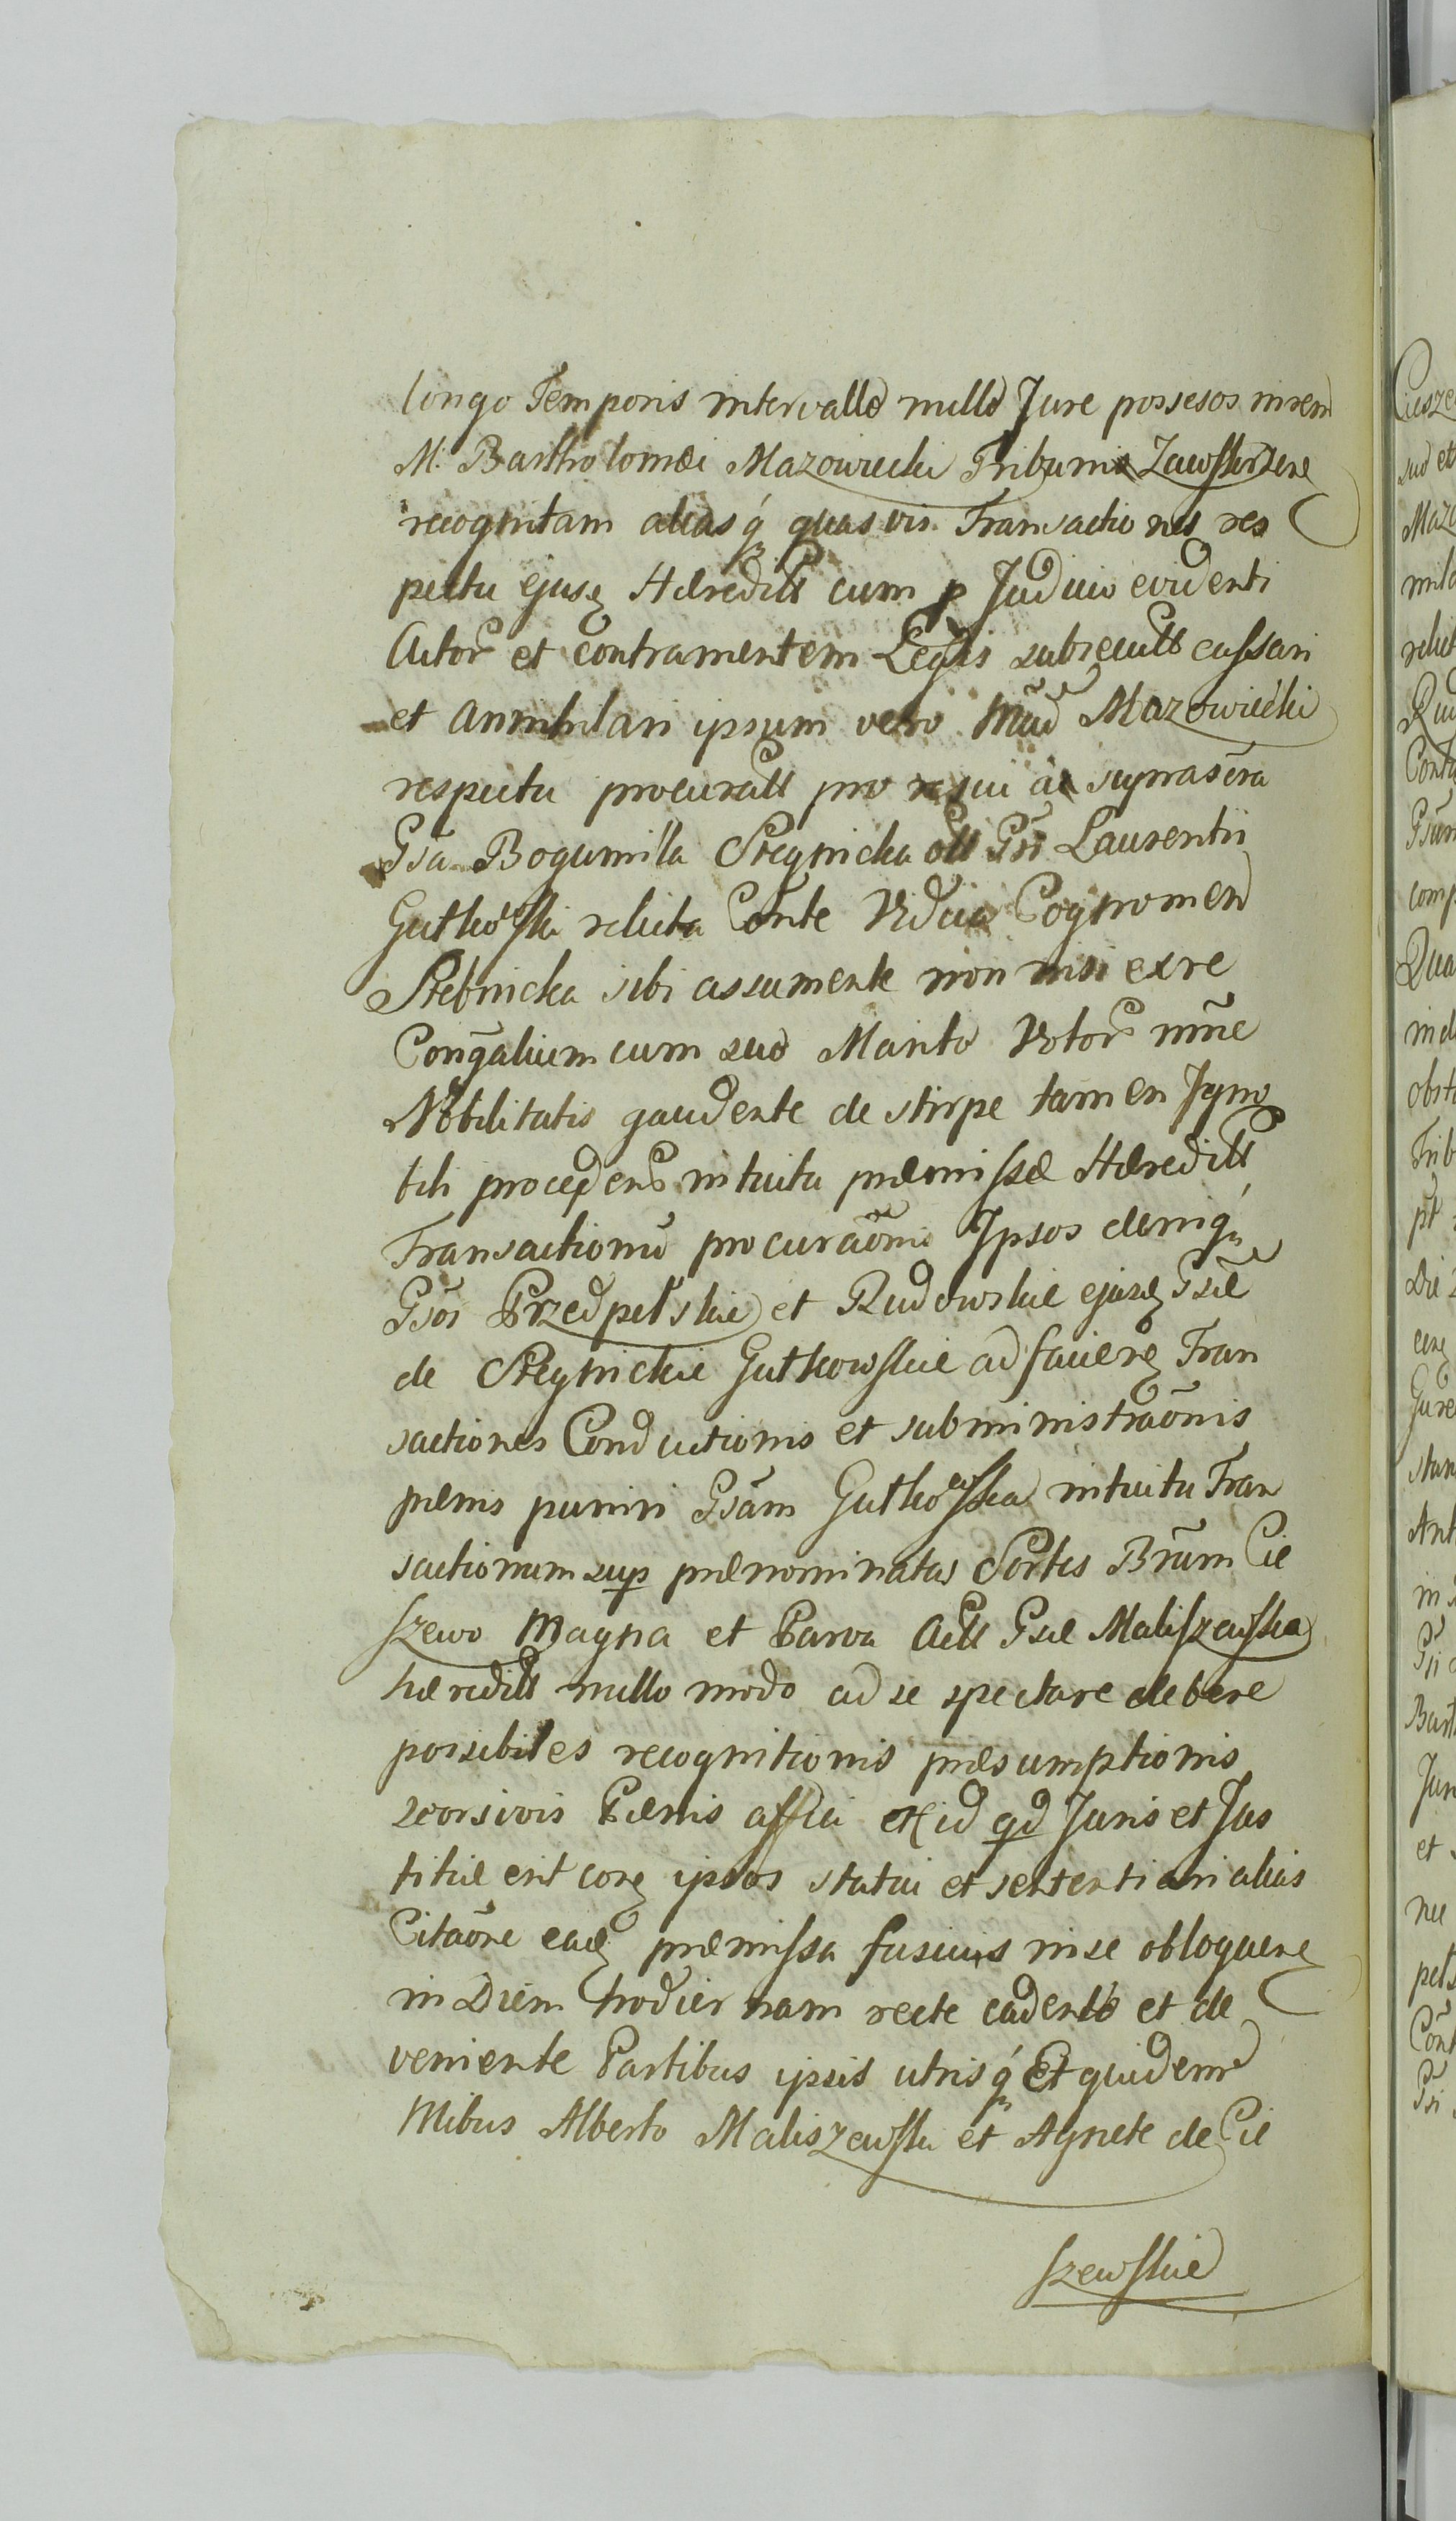 longo Temporis intervallo nullo Jure possesos in rem
M. Bartholomæi Mazowiecki Tribuni Zawskrzen
recognitam alias q́ quasvis Transactiones res
pectu ejusq Hæreditt cum p Judicio evidenti
Actor et contra mentem Legis subsecutt cassari
et Annihilari ipsum vero Mãd Mazowiecki
respectu procuratt pro re sui a suprascra
Gsa Bogumilla Stegnicka ott Gsi Laurentii
Gutkowski relicta Conte Vidua Cognomen
Stebnicka sibi assumente non nisi ex re
Conñgalium cum suo Marito Votor nñne
Nobilitatis gaudente de stirpe tamen Igno
bili proceden intuitu præmissæ Hæreditt
Transactionũ procuraõnis Ipsos deniq́
Gsos Przedpełskie et Rudowskie ejusq Gsæ
de Stegnickie Gutkowskie ad facieñ Tran
sactiones Conductionis et subministraõnis
pænis puniri Gsãm Gutkowska intuitu Tran
sactionum sup prænominatas Sortes Bñum Cie
szewo Magna et Parva Actt Gsæ Maliszewska
hæreditt nullo modo ad se spectare debere
possibiles recognitionis præsumptionis
seorsivis Pænis affici et id qd Juris et Jus
titiæ erit coñ ipsos statui et sententiari alias
Citaõne eadẽ præmissa fusius in se obloquen
in Diem hodiernam recte cadente et de
veniente Partibus ipsis utrisq́ Et quidem
Mibus Alberto Maliszewski et Agnete de Cie
szewskie